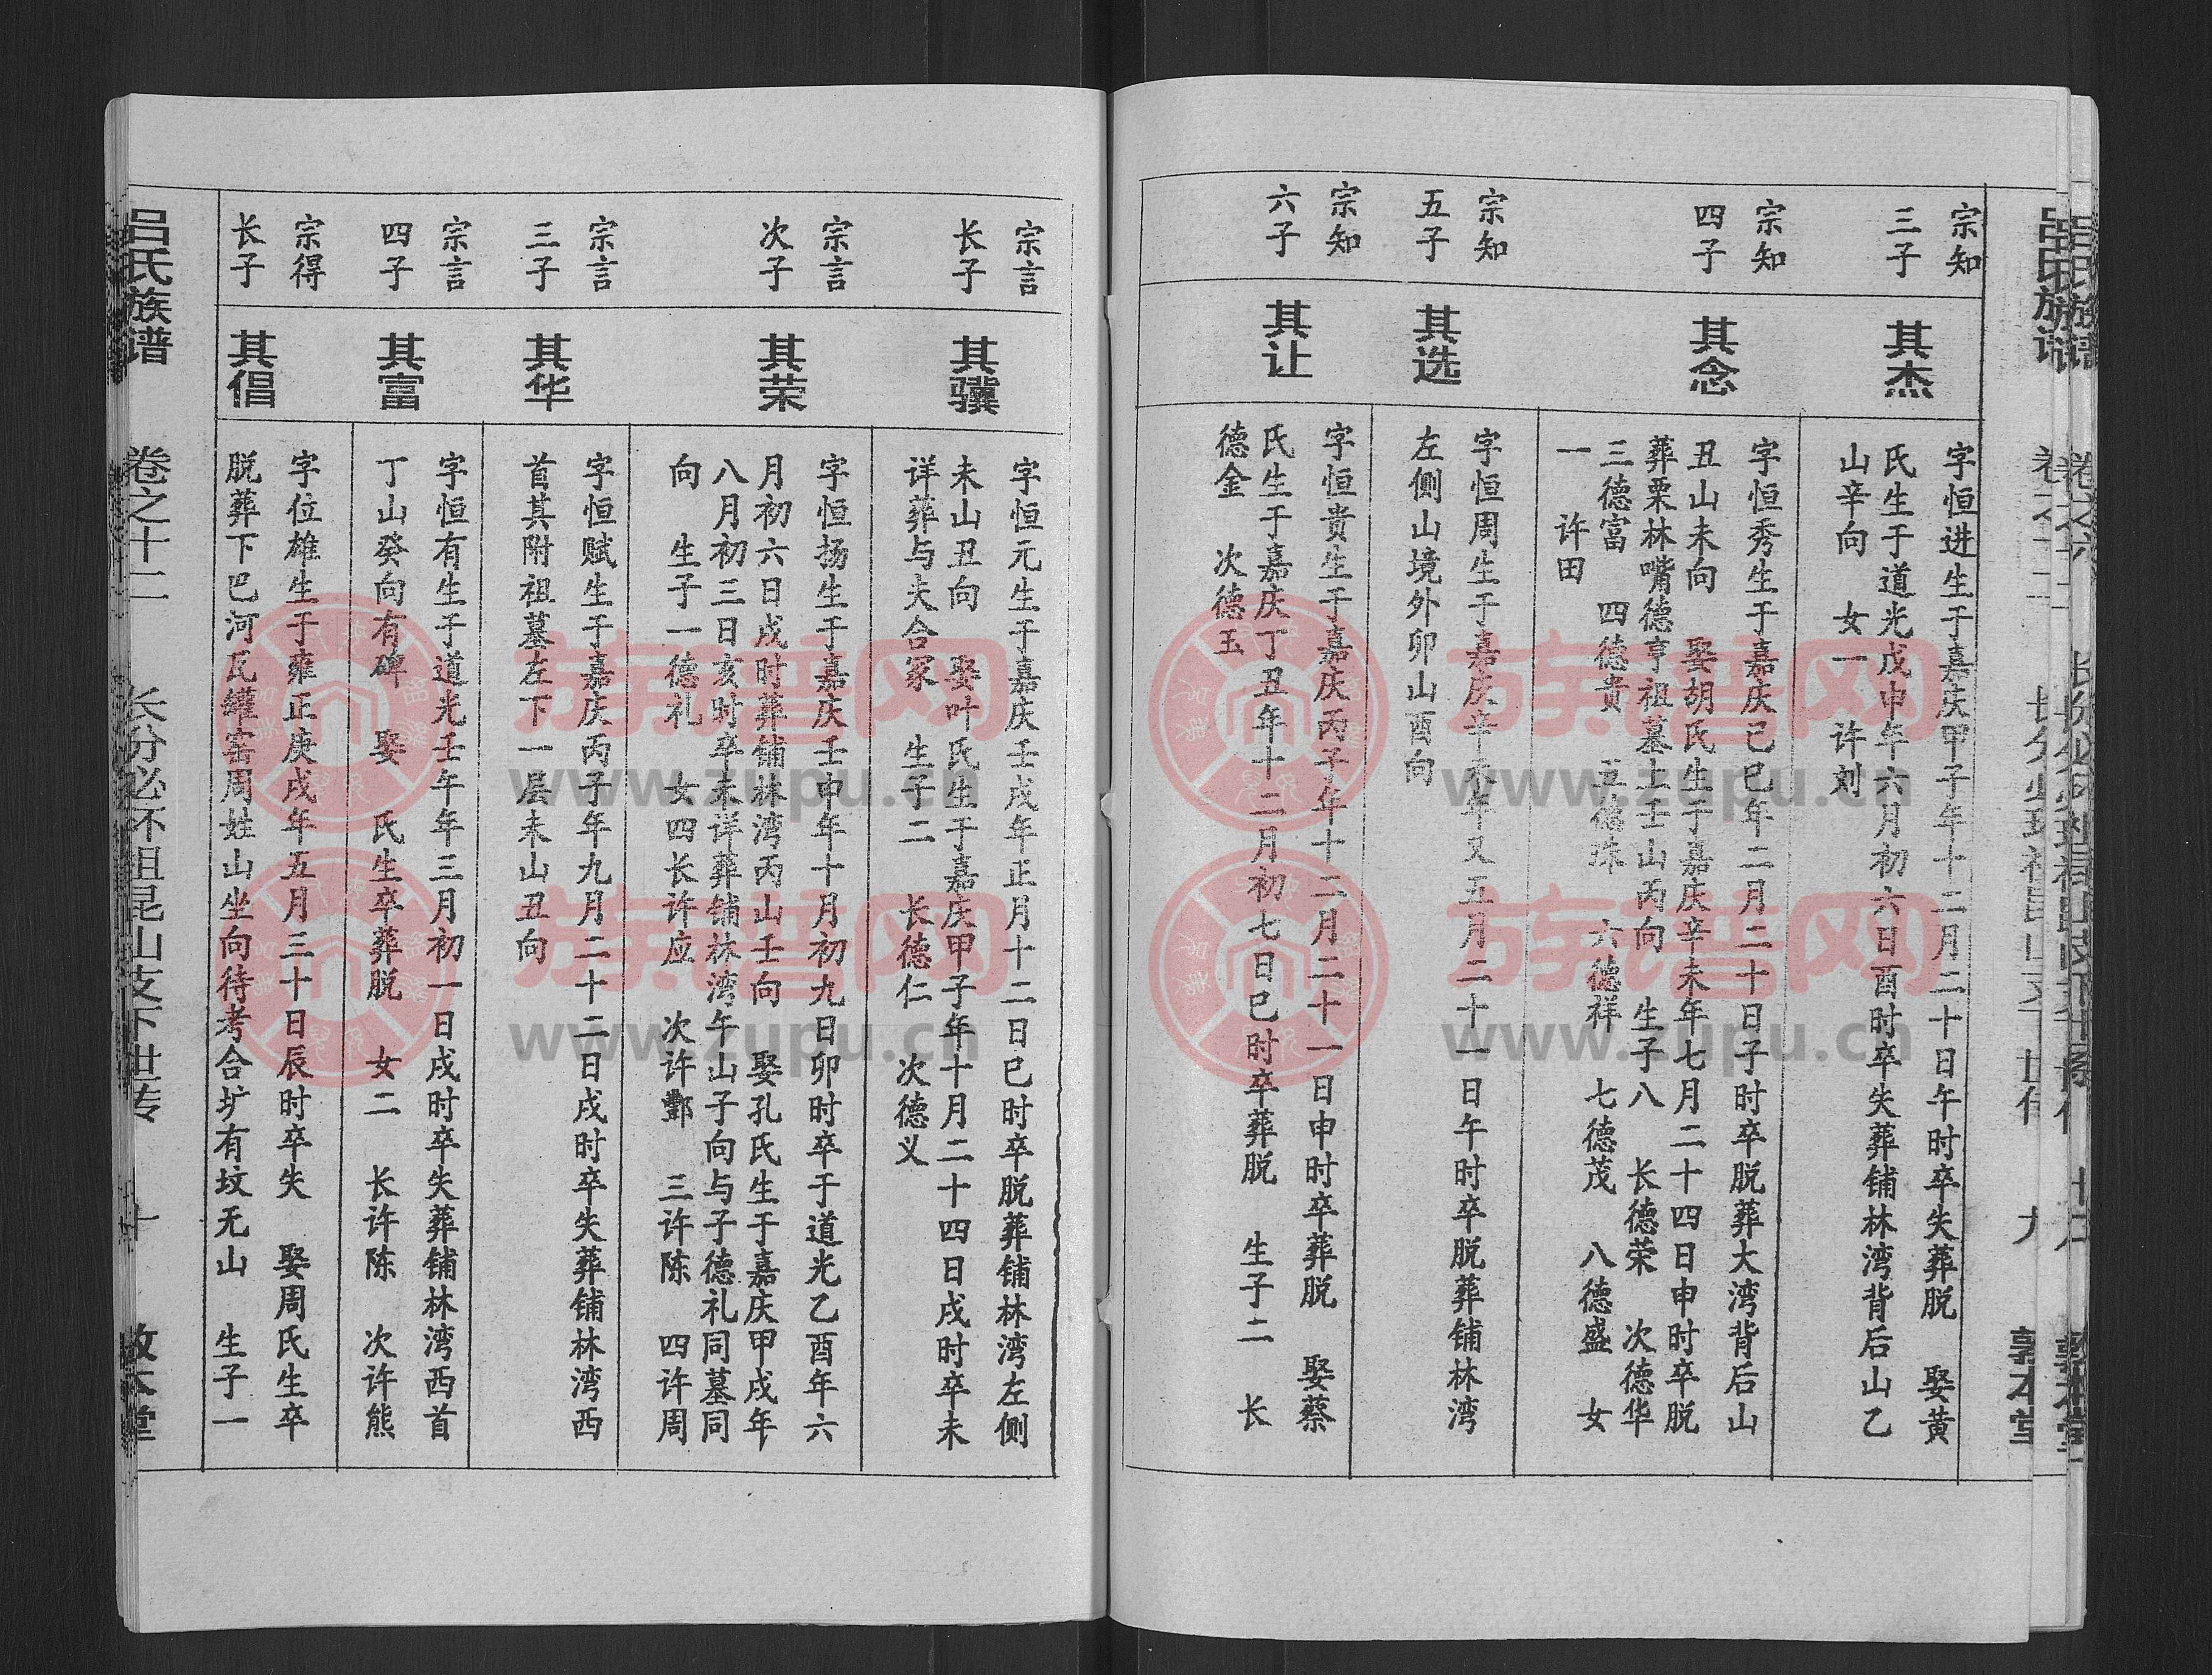 宗知
三子
其杰
字恒进生于嘉庆甲子年十二月二十日午时卒失葬脱 娶黄
氏生于道光戊申年六月初六日酉时卒失葬铺林湾背后山乙
山辛向 女一 许刘
宗知
四子
其念
字恒秀生于嘉庆己巳年二月二十日子时卒脱葬大湾背后山
丑山未向 娶胡氏生于嘉庆辛未年七月二十四日申时卒脱
葬栗林嘴德亨祖墓上壬山丙向 生子八 长德荣 次德华
三德富 四德贵 五德珠 六德祥 七德茂 八德盛 女
一 许田
宗知
五子
其选
字恒周生于嘉庆辛未年又五月二十一日午时卒脱葬铺林湾
左侧山境外卯山酉向
宗知
六子
其让
字恒贵生于嘉庆丙子年十二月二十一日申时卒葬脱 娶蔡
氏生于嘉庆丁丑年十二月初七日巳时卒葬脱 生子二 长
德金 次德玉
宗言
长子
其骥
字恒元生于嘉庆壬戌年正月十二日巳时卒脱葬铺林湾左侧
未山丑向 娶叶氏生于嘉庆甲子年十月二十四日戌时卒未
详葬与夫合冢 生子二 长德仁 次德义
宗言
次子
其荣
字恒扬生于嘉庆壬申年十月初九日卯时卒于道光乙酉年六
月初六日戌时葬铺林湾丙山壬向 娶孔氏生于嘉庆甲戌年
八月初三日亥时卒未详葬铺林湾午山子向与子德礼同墓同
向 生子一德礼 女四长许应 次许酆 三许陈 四许周
宗言
三子
其华
字恒赋生于嘉庆丙子年九月二十二日戌时卒失葬铺林湾西
首其附祖墓左下一层未山丑向
宗言
四子
其富
字恒有生于道光壬午年三月初一日戌时卒失葬铺林湾西首
丁山癸向有碑 娶 氏生卒葬脱 女二 长许陈 次许熊
宗得
长子
其倡
字位雄生于雍正庚戌年五月三十日辰时卒失 娶周氏生卒
脱葬下巴河瓦罐窑周姓山坐向待考合圹有坟无山 生子一
吕氏族谱 卷之十二 长份必怀祖昆山支下世传 十 敦本堂
族谱网
www.zupu.cn
族谱网
www.zupu.cn
族谱网
www.zupu.cn
族谱网
www.zupu.cn